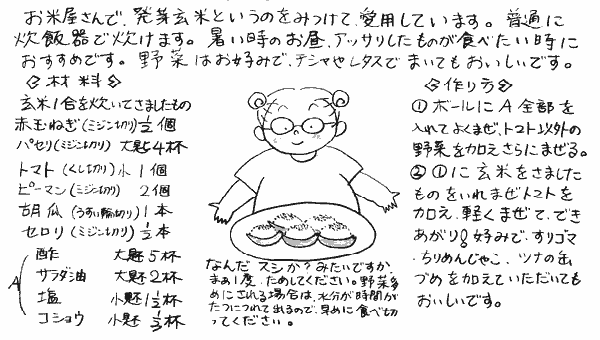 お米屋さんで、発芽玄米というのをみつけて、愛用しています。普通に
炊飯器で炊けます。暑い時のお昼、アッサリしたものが食べたい時に
おすすめです。野菜はお好みで、テンマやレタスでまいてもおいしいです。
◇材料◇
玄米1合を炊いてさましたもの
赤玉ねぎ(ミジン切り)½個
パセリ(ミジン切り) 大匙4杯
トマト(くし切り)小1個
ピーマン(ミジン切り) 2個
胡瓜(うすい輪切り)1本
セロリ(ミジン切り)½本
A
酢 大匙5杯
サラダ油 大匙2杯
塩 小匙1½杯
コショウ 小匙⅓杯
なんだスシか?みたいですが、
まぁ1度、ためしてください。野菜多
めにされる場合は、水分が時間が
たつにつれて出るので、早めに食べ切
ってください。
◇作り方◇
①ボールにA全部を
入れてよくまぜ、トマト以外の
野菜を加えさらにまぜる。
②①に玄米をさました
ものをいれまぜトマトを
加え、軽くまぜて、でき
あがり!好みで、すりゴマ
、ちりめんじゃこ、ツナの缶
づめを加えていただいても
おいしいです。